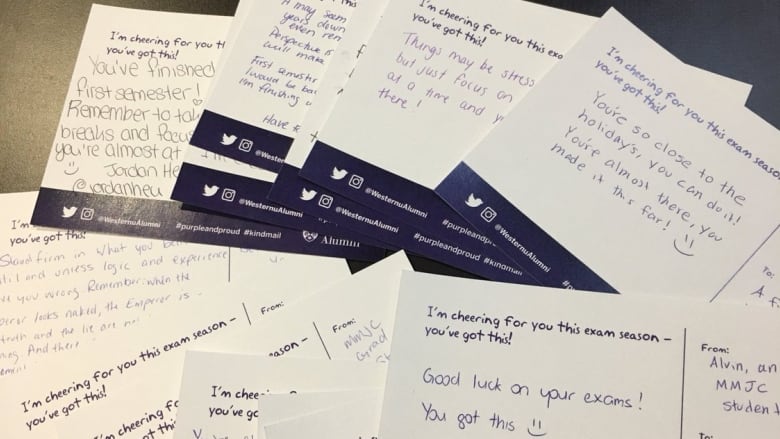 I'm cheering for you this
you've got this!
You've finished
first semester!
Remember to
breaks and
you're almost at
Jordan
@jordanheu
@WesternuAlumni
#purpleandproud #kindmail
Alumni
may seem
years down
even
Perspective is
will make
First semester
I would be
I'm finishing
Have
@Western
@WesternuAlumni
@WesternuAlumni
I'm cheering for you this
you've got this!
Things may be
but just focus on
at a time and
there!
@WesternuAlumni
#purpleand
#kindmail
I'm cheering for you this exam season
you've got this!
You're so close to the
holiday's, you can do it!
You're almost there, you
made it this far!
To:
A
@WesternuAlumni
I'm
you've got this!
firm in what you
until and unless logic and experience
you wrong Remember: when the
looks naked, the Emperor is
truth and the lie are
And there
I'm cheering for you this exam season –
you've got this!
From:
I'm cheering for
you've got this!
season –
From:
MMJC
Grad
I'm
you've go
I'm cheering for you this exam season –
you've got this!
Good luck on your exams!
You got this
From:
Alvin, an
MMJC
student
To: